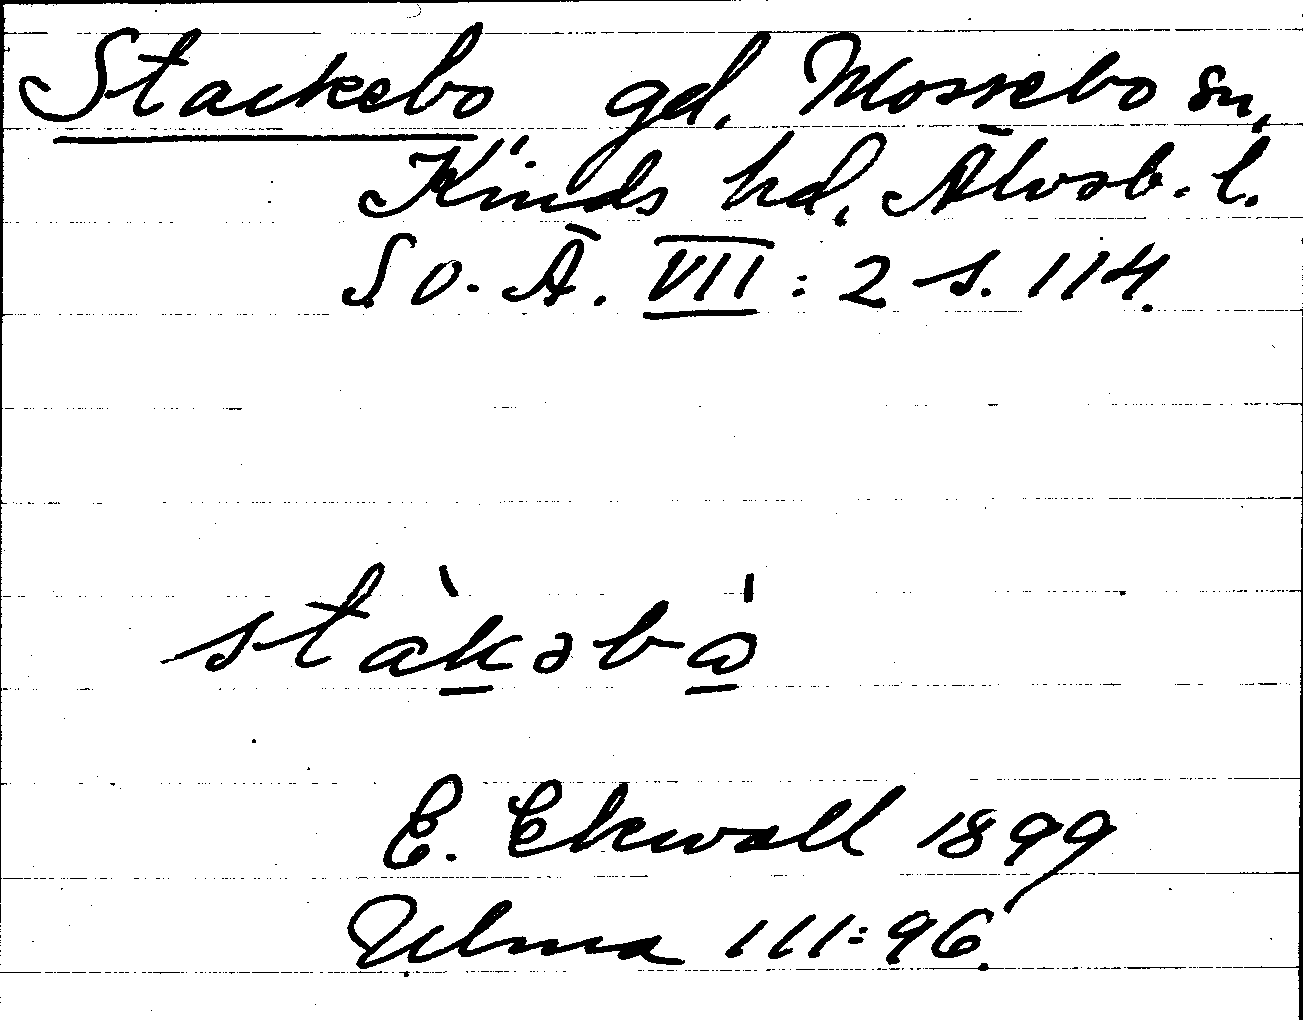 Stackebo gd. Mossebo sn,
Kinds hd, Älvsb. l.
S O. Ä. VII : 2 s. 114.
stàkəbå̍
E. Ekwall 1899
Ulma 111:96.